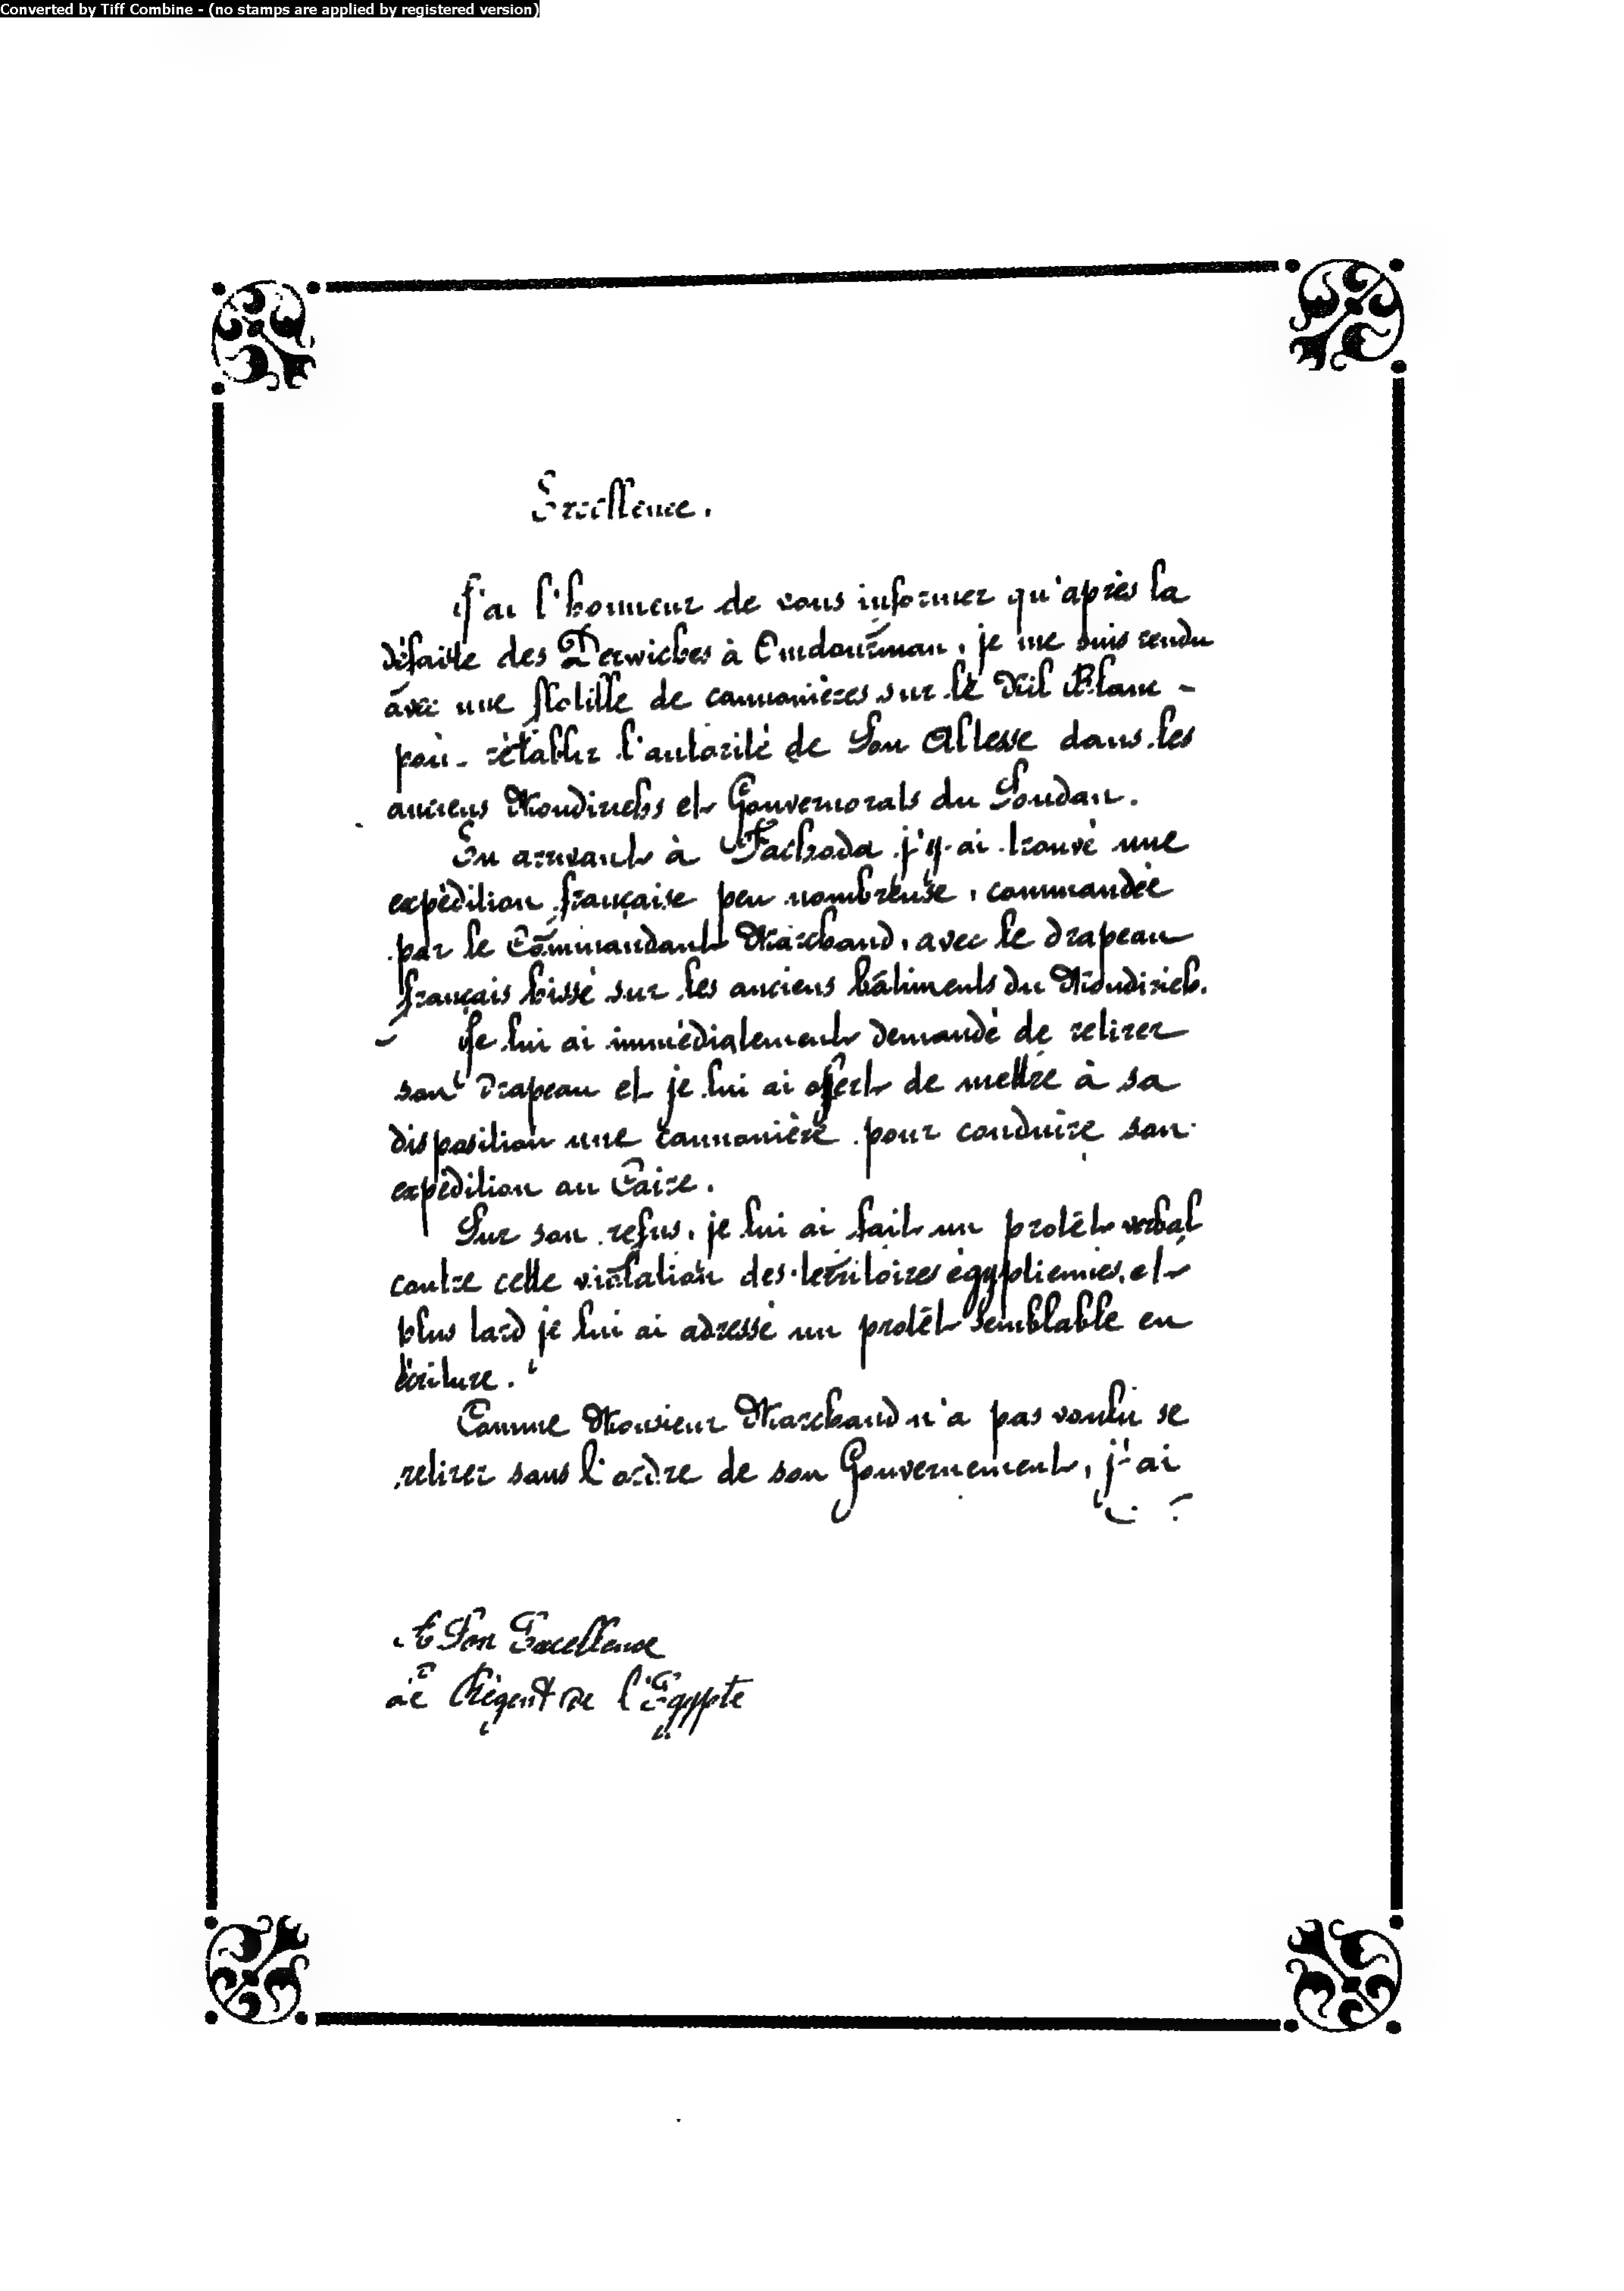 Converted by Tiff Combine - (no stamps are applied by registered version)
Excellence.
J'ai l'honneur de vous informer qu'après la
défaite des Derwiches à Omdourman, je me suis rendu
avec une flotille de cannonières sur le Nil Blanc
pour rétablir l'autorité de Son Altesse dans les
anciens Moudiriehs et Gouvernorats du Soudan.
En arrivant à Fachoda j'y ai trouvé une
expédition française peu nombreuse, commandée
par le Commandant Marchand, avec le drapeau
français hissé sur les anciens bâtiments du Moudirieh.
Je lui ai immédiatement demandé de retirer
son drapeau et je lui ai offert de mettre à sa
disposition une cannonière pour conduire son
expédition au Caire.
Sur son refus, je lui ai fait un protêt verbal
contre cette violation des territoires égyptiennes, et
plus tard je lui ai adressé un protêt semblable en
écriture.
Comme Monsieur Marchand n'a pas voulu se
retirer sans l'ordre de son Gouvernement, j'ai
A Son Excellence
Le Régent de l'Egypte